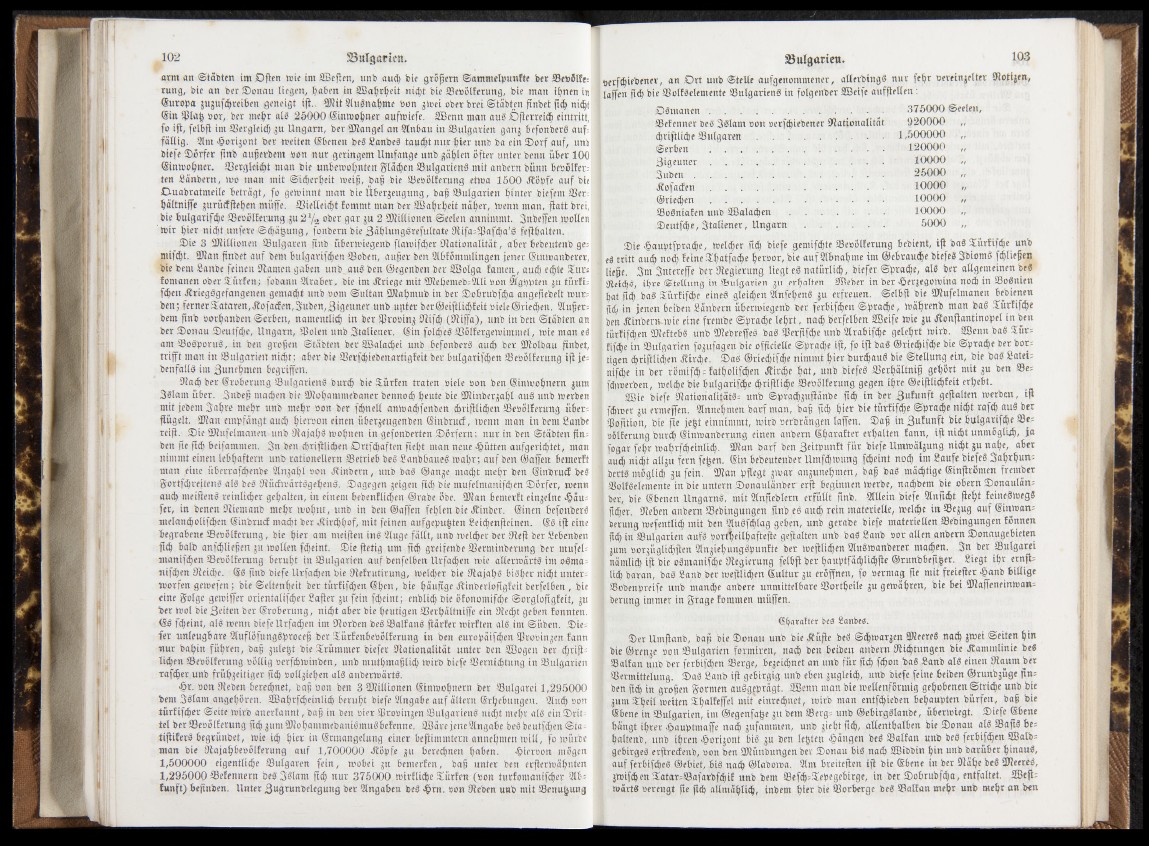 102 Bulgarien.
arm an Städten im Osten wie im Westen, und auch die größern Sammelpunkte der Bevölke-
rung, die an der Donau liegen, haben in Wahrheit nicht die Bevölkerung, die man ihnen in
Europa zuzuschreiben geneigt ist. Mit Ausnahme von zwei oder drei Städten findet sich nicht
Ein Platz vor, der mehr als 25000 Einwohner aufwiese. Wenn man aus Österreich eintritt,
so ist, selbst im Vergleich zu Ungarn, der Mangel an Anbau in Bulgarien ganz besonders auf-
fällig. Am Horizont der weiten Ebenen des Landes taucht nur hier und da ein Dorf auf, und
diese Dörfer sind außerdem von nur geringem Umfange und zählen öfter unter denn über 100
Einwohner. Vergleicht man die unbewohnten Flächen Bulgariens mit andern dünn bevölker-
ten Ländern, wo man mit Sicherheit weiß, daß die Bevölkerung etwa 1500 Köpfe auf die
Quadratmeile beträgt, so gewinnt man die Überzeugung, daß Bulgarien hinter diesem Ver-
hältnisse zurückstehen müsse. Vielleicht kommt man der Wahrheit näher, wenn man, statt drei,
die bulgarische Bevölkerung zu 2½ oder gar zu 2 Millionen Seelen annimmt. Indessen wollen
wir hier nicht unsere Schätzung, sondern die Zählungsresultate Risa-Pascha's festhalten.
Die 3 Millionen Bulgaren sind überwiegend slawischer Nationalität, aber bedeutend ge-
mischt. Man findet auf dem bulgarischen Boden, außer den Abkömmlingen jener Einwanderer,
die dem Lande seinen Namen gaben und aus den Gegenden der Wolga kamen, auch echte Tur-
komanen oder Türken; sodann Araber, die im Kriege mit Mehemed-Ali von Ägypten zu türki-
schen Kriegsgefangenen gemacht und vom Sultan Mahmud in der Dobrudscha angesiedelt wur-
den; ferner Tataren, Kosacken, Juden, Zigeuner und unter der Geistlichkeit viele Griechen. Außer-
dem sind vorhanden Serben, namentlich in der Provinz Nisch (Nissa), und in den Städten an
der Donau Deutsche, Ungarn, Polen und Italiener. Ein solches Völkergewimmel, wie man es
am Bosporus, in den großen Städten der Walachei und besonders auch der Moldau findet,
trifft man in Bulgarien nicht; aber die Verschiedenartigkeit der bulgarischen Bevölkerung ist je-
denfalls im Zunehmen begriffen.
Nach der Eroberung Bulgariens durch die Türken traten viele von den Einwohnern zum
Islam über. Indeß machen die Mohammedaner dennoch heute die Minderzahl aus und werden
mit jedem Jahre mehr und mehr von der schnell anwachsenden christlichen Bevölkerung über-
flügelt. Man empfängt auch hiervon einen überzeugenden Eindruck, wenn man in dem Lande
reist. Die Muselmanen und Rajahs wohnen in gesonderten Dörfern: nur in den Städten fin-
den sie sich beisammen. In den christlichen Ortschaften sieht man neue Hütten aufgerichtet, man
nimmt einen lebhaftern und rationellern Betrieb des Landbaues wahr; auf den Gassen bemerkt
man eine überraschende Anzahl von Kindern, und das Ganze macht mehr den Eindruck des
Fortschreitens als des Rückwärtsgehens. Dagegen zeigen sich die muselmanischen Dörfer, wenn
auch meistens reinlicher gehalten, in einem bedenklichen Grade öde. Man bemerkt einzelne Häu-
ser, in denen Niemand mehr wohnt, und in den Gassen fehlen die Kinder. Einen besonders
melancholischen Eindruck macht der Kirchhof, mit seinen aufgeputzten Leichensteinen. Es ist eine
begrabene Bevölkerung, die hier am meisten ins Auge fällt, und welcher der Rest der Lebenden
sich bald anschließen zu wollen scheint. Die stetig um sich greifende Verminderung der musel-
manischen Bevölkerung beruht in Bulgarien auf denselben Ursachen wie allerwärts im osma-
nischen Reiche. Es sind diese Ursachen die Rekrutirung, welcher die Rajahs bisher nicht unter-
worfen gewesen; die Seltenheit der türkischen Ehen, die häufige Kinderlosigkeit derselben, die
eine Folge gewisser orientalischer Laster zu sein scheint; endlich die ökonomische Sorglosigkeit, zu
der wol die Zeiten der Eroberung, nicht aber die heutigen Verhältnisse ein Recht geben konnten.
Es scheint, als wenn diese Ursachen im Norden des Balkans stärker wirkten als im Süden. Die-
ser unleugbare Auflösungsproceß der Türkenbevölkerung in den europäischen Provinzen kann
nur dahin führen, daß zuletzt die Trümmer dieser Nationalität unter den Wogen der christ-
lichen Bevölkerung völlig verschwinden, und muthmaßlich wird diese Vernichtung in Bulgarien
rascher und frühzeitiger sich vollziehen als anderwärts.
Hr. von Reden berechnet, daß von den 3 Millionen Einwohnern der Bulgarei 1,295000
dem Islam angehören. Wahrscheinlich beruht diese Angabe auf ältern Erhebungen. Auch von
türkischer Seite wird anerkannt, daß in den vier Provinzen Bulgariens nicht mehr als ein Drit-
tel der Bevölkerung sich zum Mohammedanismus bekenne. Wäre jene Angabe des deutschen Sta-
tistikers begründet, wie ich hier in Ermangelung einer bestimmtern annehmen will, so würde
man die Rajahbevölkerung auf 1,700000 Köpfe zu berechnen haben. Hiervon mögen
1,500000 eigentliche Bulgaren sein, wobei zu bemerken, daß unter den ersterwähnten
1,295000 Bekennern des Islam sich nur 375000 wirkliche Türken (von turkomanischer Ab-
kunft) befinden. Unter Zugrundelegung der Angaben des Hrn. von Reden und mit Benutzung
Bulgarien. 103
verschiedener, an Ort und Stelle aufgenommener, allerdings nur sehr vereinzelter Notizen,
lassen sich die Volkselemente Bulgariens in folgender Weise aufstellen:
Osmanen . . . . . . . . . . . 375000 Seelen,
Bekenner des Islam von verschiedener Nationalität 920000 „
christliche Bulgaren . . . . . . . . 1,500000 „
Serben . . . . . . . . . . . 120000 „
Zigeuner . . . . . . . . . . . 10000 „
Juden . . . . . . . . . . . . 25000 „
Kosacken . . . . . . . . . . . 10000 „
Griechen . . . . . . . . . . . 10000 „
Bosniaken und Walachen . . . . . . 10000 „
Deutsche, Italiener, Ungarn . . . . . 5000 „
Die Hauptsprache, welcher sich diese gemischte Bevölkerung bedient, ist das Türkische und
es tritt auch noch keine Thatsache hervor, die auf Abnahme im Gebrauche dieses Idioms schließen
ließe. Im Interesse der Regierung liegt es natürlich, dieser Sprache, als der allgemeinen des
Reichs, ihre Stellung in Bulgarien zu erhalten. Weder in der Herzegowina noch in Bosnien
hat sich das Türkische eines gleichen Ansehens zu erfreuen. Selbst die Muselmanen bedienen
sich in jenen beiden Ländern überwiegend der serbischen Sprache, während man das Türkische
den Kindern wie eine fremde Sprache lehrt, nach derselben Weise wie zu Konstantinopel in den
türkischen Mektebs und Medresses das Persische und Arabische gelehrt wird. Wenn das Tür-
kische in Bulgarien sozusagen die officielle Sprache ist, so ist das Griechische die Sprache der dor-
tigen christlichen Kirche. Das Griechische nimmt hier durchaus die Stellung ein, die das Latei-
nische in der römisch-katholischen Kirche hat, und dieses Verhältniß gehört mit zu den Be-
schwerden, welche die bulgarische christliche Bevölkerung gegen ihre Geistlichkeit erhebt.
Wie diese Nationalitäts- und Sprachzustände sich in der Zukunft gestalten werden, ist
schwer zu ermessen. Annehmen darf man, daß sich hier die türkische Sprache nicht rasch aus der
Position, die sie jetzt einnimmt, wird verdrängen lassen. Daß in Zukunft die bulgarische Be-
völkerung durch Einwanderung einen andern Charakter erhalten kann, ist nicht unmöglich, ja
sogar sehr wahrscheinlich. Man darf den Zeitpunkt für diese Umwälzung nicht zu nahe, aber
auch nicht allzu fern setzen. Ein bedeutender Umschwung scheint noch im Laufe dieses Jahrhun-
derts möglich zu sein. Man pflegt zwar anzunehmen, daß das mächtige Einströmen fremder
Volkselemente in die untern Donauländer erst beginnen werde, nachdem die obern Donaulän-
der, die Ebenen Ungarns, mit Ansiedlern erfüllt sind. Allein diese Ansicht steht keineswegs
sicher. Neben andern Bedingungen sind es auch rein materielle, welche in Bezug auf Einwan-
derung wesentlich mit den Ausschlag geben, und gerade diese materiellen Bedingungen können
sich in Bulgarien aufs vortheilhafteste gestalten und das Land vor allen andern Donaugebieten
zum vorzüglichsten Anziehungspunkte der westlichen Auswanderer machen. In der Bulgarei
nämlich ist die osmanische Regierung selbst der hauptsächlichste Grundbesitzer. Liegt ihr ernst-
lich daran, das Land der westlichen Cultur zu eröffnen, so vermag sie mit freiester Hand billige
Bodenpreise und manche andere unmittelbare Vortheile zu gewähren, die bei Masseneinwan-
derung immer in Frage kommen müssen.
Charakter des Landes.
Der Umstand, daß die Donau und die Küste des Schwarzen Meeres nach zwei Seiten hin
die Grenze von Bulgarien formiren, nach den beiden andern Richtungen die Kammlinie des
Balkan und der serbischen Berge, bezeichnet an und für sich schon das Land als einen Raum der
Vermittelung. Das Land ist gebirgig und eben zugleich, und diese seine beiden Grundzüge fin-
den sich in großen Formen ausgeprägt. Wenn man die wellenförmig gehobenen Striche und die
zum Theil weiten Thalkessel mit einrechnet, wird man entschieden behaupten dürfen, daß die
Ebene in Bulgarien, im Gegensatze zu dem Berg- und Gebirgslande, überwiegt. Diese Ebene
hängt ihrer Hauptmasse nach zusammen, und zieht sich, allenthalben die Donau als Basis be-
haltend, und ihren Horizont bis zu den letzten Hängen des Balkan und des serbischen Wald-
gebirges erstreckend, von den Mündungen der Donau bis nach Widdin hin und darüber hinaus,
auf serbisches Gebiet, bis nach Gladowa. Am breitesten ist die Ebene in der Nähe des Meeres,
zwischen Tatar-Basardschik und dem Besch-Tepegebirge, in der Dobrudscha, entfaltet. West-
wärts verengt sie sich allmählich, indem hier die Vorberge des Balkan mehr und mehr an den